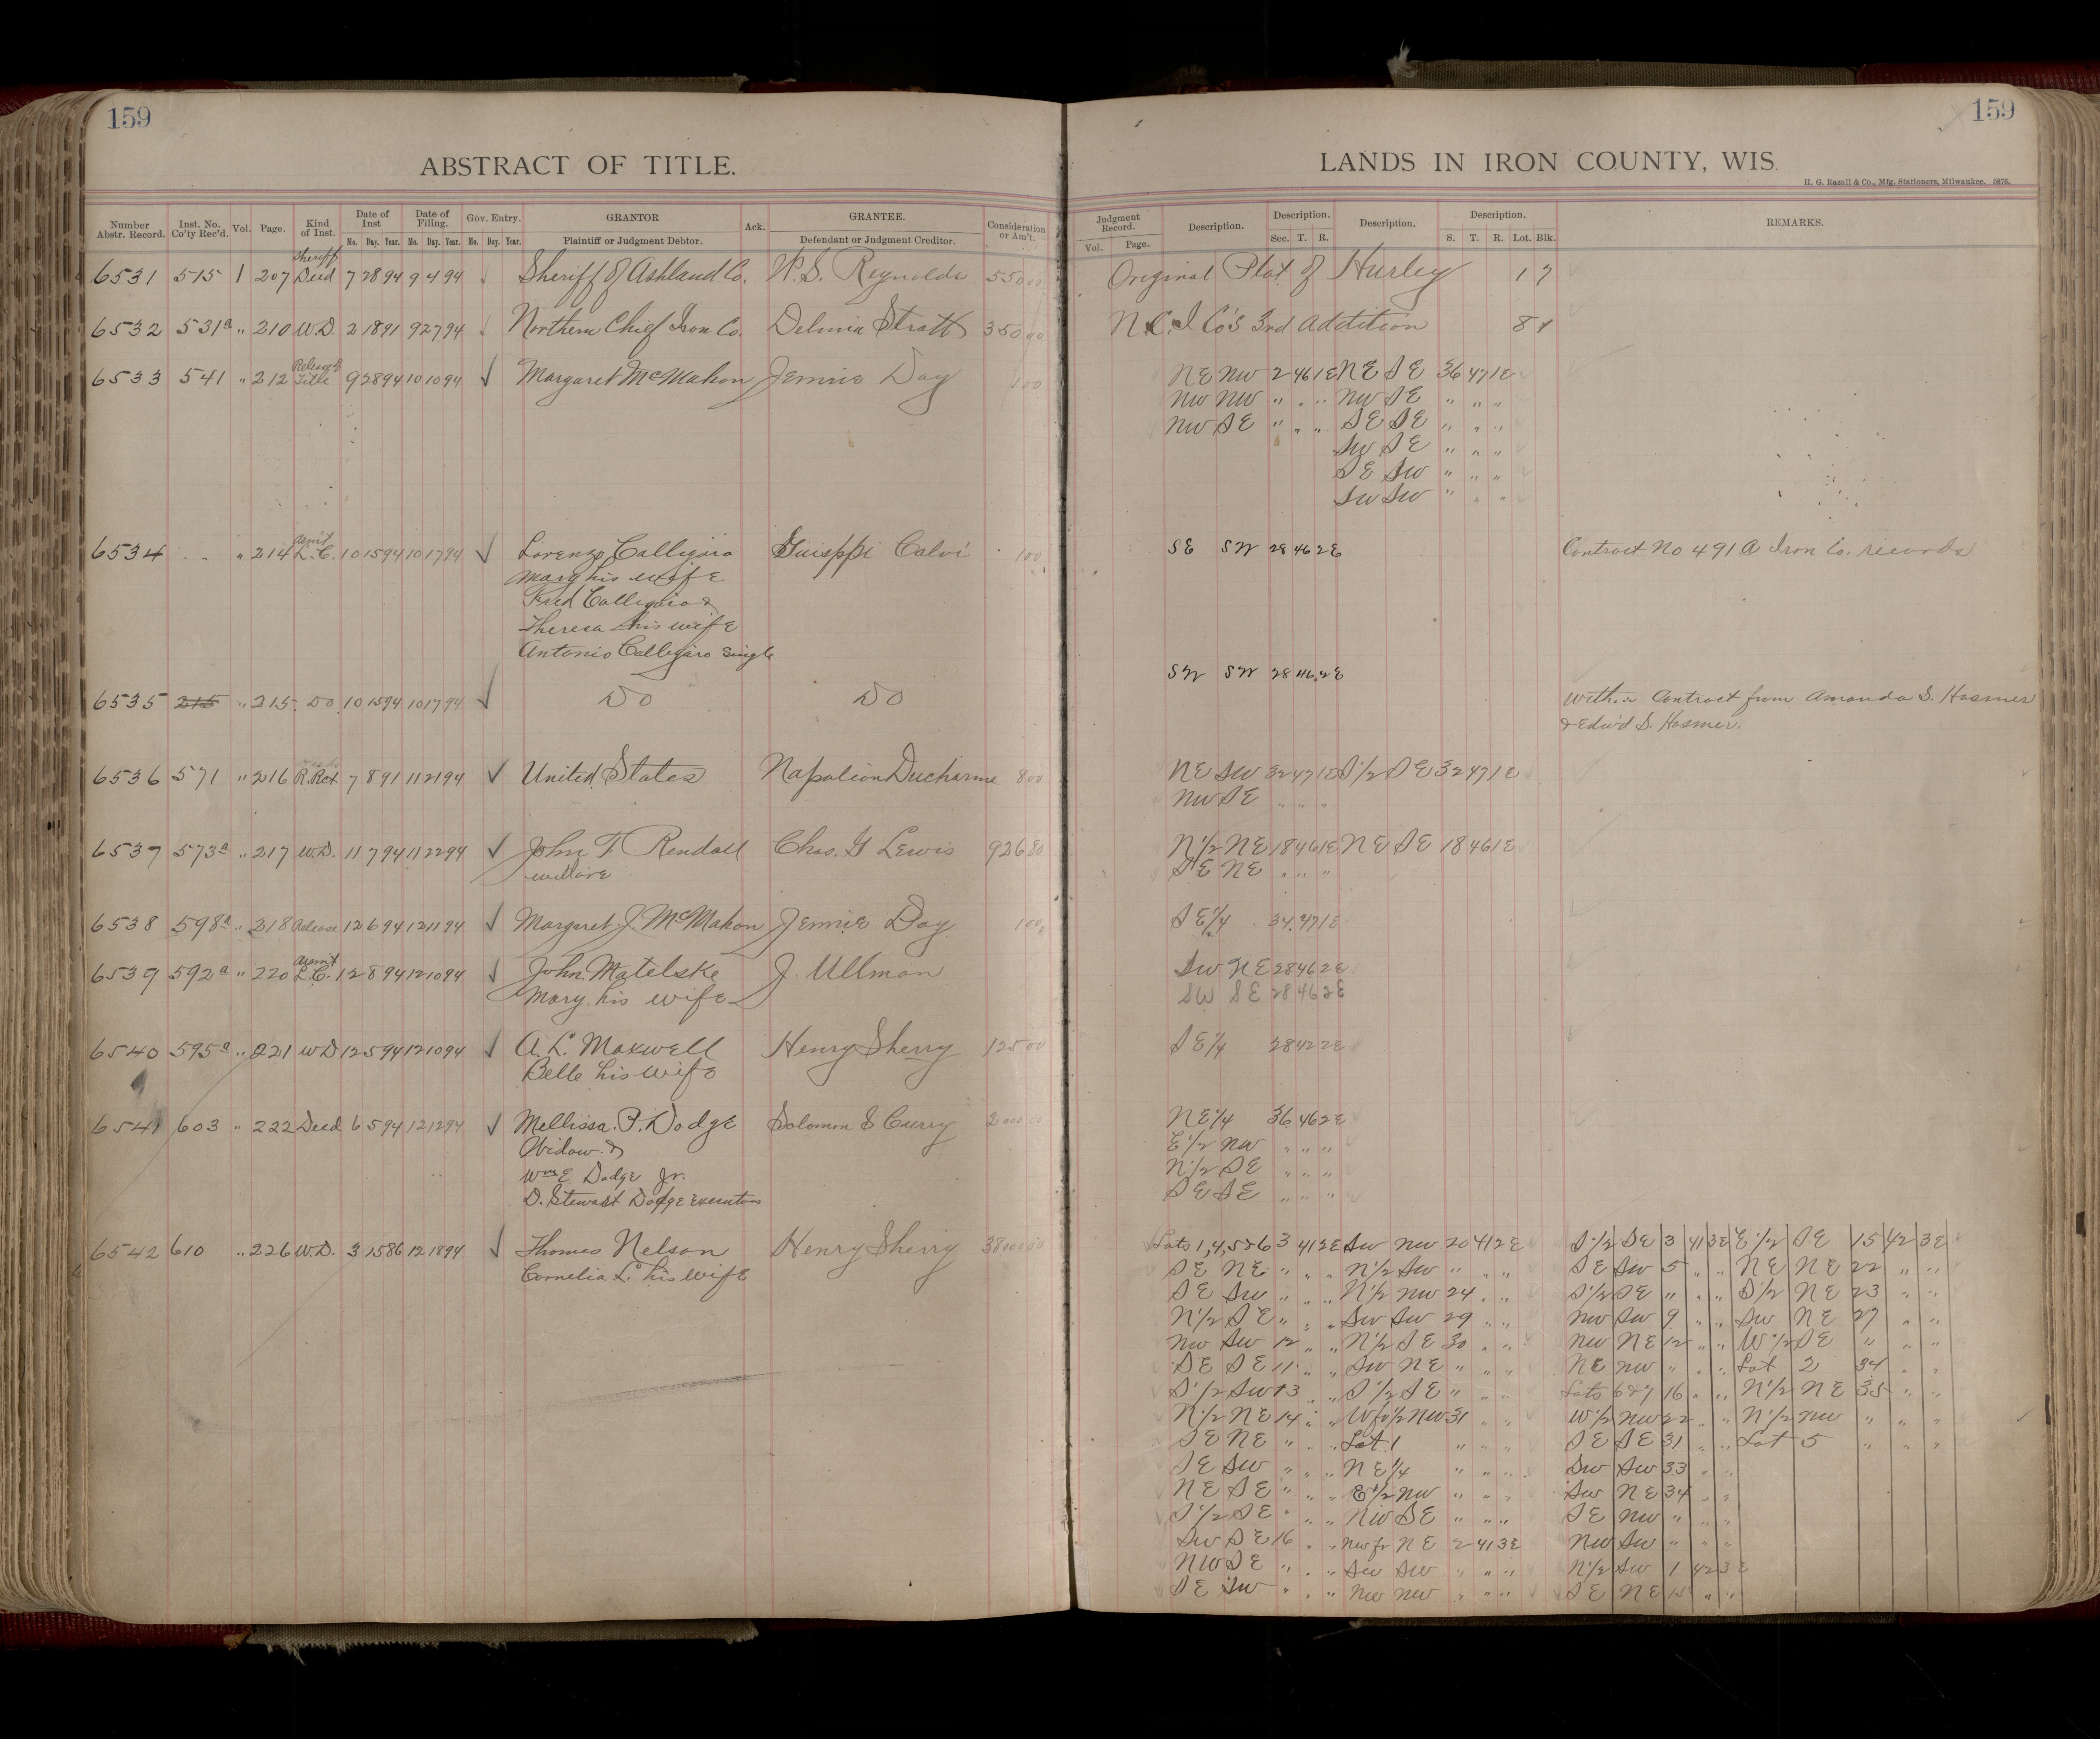 159
159
ABSTRACT OF TITLE.
LANDS IN IRON COUNTY, WIS.
H. G. Razall & Co., Mfg. Stationers, Milwaukee. 5876.
Number Abstr. Record. Inst. No. Co'ty Rec'd. Vol. Page. Kind of Inst. Date of Inst Mo. Day. Year. Date of Filing. Mo. Day. Year. Gov. Entry. Mo. Day. Year. GRANTOR Plaintiff or Judgment Debtor. Ack. GRANTEE. Defendant or Judgment Creditor. Consideration or Am't.
Judgment Record. Vol. Page. Description. Description. Sec. T. R. Description. Description. S. T. R. Lot. Blk. REMARKS.
6531 515 1 207 Sheriff Deed 7 28 94 9 4 94 Sheriff of Ashland Co. W. S. Reynolds 550 00 Original Plat of Hurley 1 7
6532 531a " 210 W.D. 2 18 91 9 27 94 Northern Chief Iron Co. Delinia Stratt 350 00 N.C.I Co's 3rd Addition 8
6533 541 " 212 Release Title 9 28 94 10 10 94 Margaret McMahon Jennie Day 1 00 NE NW 2 46 1E NE SE 36 47 1E
NW NW " " " NW SE " " "
NW SE " " " SE SE " " "
SW SE " " "
SE SW " " "
SW SW " " "
6534 " 214 Asm't L.C. 10 15 94 10 17 94 Lorenzo Calligaro Guisppi Calvi 1 00 SE SW 28 46 2E Contract No 491 A Iron Co. records
Mary his wife
Fred Calligaro &
Theresa his wife
Antonio Calligaro single
SW SW 28 46 2E
6535 215 " 215 Do 10 15 94 10 17 94 Do Do Within Contract from Amanda S. Hosmer
& Edw'd S. Hosmer.
6536 571 " 216 R.Rct 7 8 91 11 21 94 United States Napoleon Ducharme 8 00 NE SW 32 47 1E S1/2 SE 32 47 1E
NW SE " " "
6537 573a " 217 W.D. 11 7 94 11 22 94 John T Rendall Chas. G Lewis 926 80 N1/2 NE 18 46 1E NE SE 18 46 1E
SE NE " " "
6538 598a " 218 Release 12 6 94 12 11 94 Margaret J. McMahon Jennie Day 1 00 SE1/4 34 47 1E
6539 592a " 220 Asm't L.C. 12 8 94 12 10 94 John Matelske J. Ullman SW NE 28 46 2E
Mary his wife SW SE 28 46 2E
6540 595a " 221 WD 12 5 94 12 10 94 A. L. Maxwell Henry Sherry 125 00 SE1/4 28 42 2E
Belle his wife
6541 603 " 222 Deed 6 5 94 12 12 94 Mellissa P. Dodge Solomon S Curry 2000 00 NE1/4 36 46 2E
Widow & E1/2 NW " " "
Wm E Dodge Jr. N1/2 SE " " "
D. Stewart Dodge Executors SE SE " " "
6542 610 " 226 W.D. 3 15 86 12 18 94 Thomas Nelson Henry Sherry 38000 00 Lots 1,4,5&6 3 41 2E SW NW 20 41 2E S1/2 SE 3 41 3E E1/2 SE 15 42 3E
Cornelia L. his wife SE NE " " " N1/2 SW " " " SE SW 5 " " NE NE 22 " "
SE SW " " " N1/2 NW 24 " " S1/2 SE " " " S1/2 NE 23 " "
N1/2 SE " " " SW SW 29 " " NW SW 9 " " SW NE 27 " "
NW SW 12 " " N1/2 SE 30 " " NW NE 12 " " W1/2 SE " " "
SE SE 11 " " SW NE " " " NE NW " " " Lot 2 34 " "
S1/2 SW 13 " " S1/2 SE " " " Lots 6&7 16 " " N1/2 NE 35 " "
N1/2 NE 14 " " W fr 1/2 NW 31 " " W1/2 NW 22 " " N1/2 NW " " "
SE NE " " " Lot 1 " " " SE SE 31 " " Lot 5 " " "
SE SW " " " NE1/4 " " " SW SW 33 " "
NE SE " " " E1/2 NW " " " SW NE 34 " "
S1/2 SE " " " NW SE " " " SE NW " " "
SW SE 16 " " NW fr NE 2 41 3E NW SW " " "
NW SE " " " SW SW " " " N1/2 SW 1 42 3E
SE SW " " " NW NW " " " SE NE 15 " "